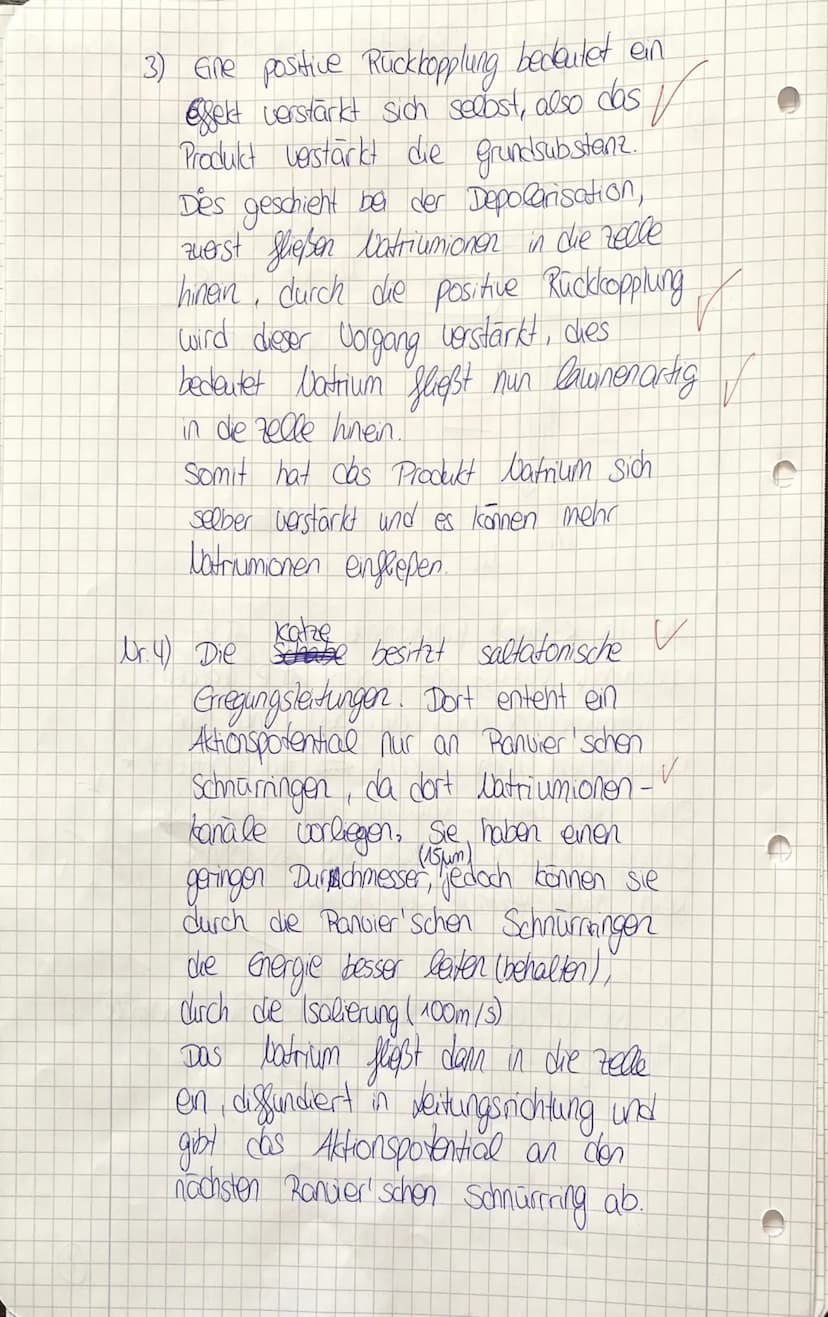 3) Eine positive Rückkopplung bedeutet ein
Effekt verstärkt sich selbst, also das
Produkt verstärkt die Grundsubstanz.
Dies geschieht bei der Depolarisation,
zuerst fließen Natriumionen in die Zelle
hinein, durch die positive Rückkopplung
wird dieser Vorgang verstärkt, dies
bedeutet Natrium fließt nun lawinenartig
in die Zelle hinein.
Somit hat das Produkt Natrium sich
selber verstärkt und es können mehr
Natriumionen einfließen.
Nr. 4) Die Katze besitzt saltatonische
Erregungsleitungen. Dort enteht ein
Aktionspotential nur an Ranvier'schen
Schnürringen, da dort Natriumionen-
kanäle vorliegen, Sie haben einen
geringen Durchmesser (15μm), jedoch können sie
durch die Ranvier'schen Schnürringen
die Energie besser leiten (behalten),
durch die Isolierung (100m/s)
Das Natrium fließt dann in die Zelle
ein, diffundiert in Leitungsrichtung und
gibt das Aktionspotential an den
nächsten Ranvier'schen Schnürrring ab.